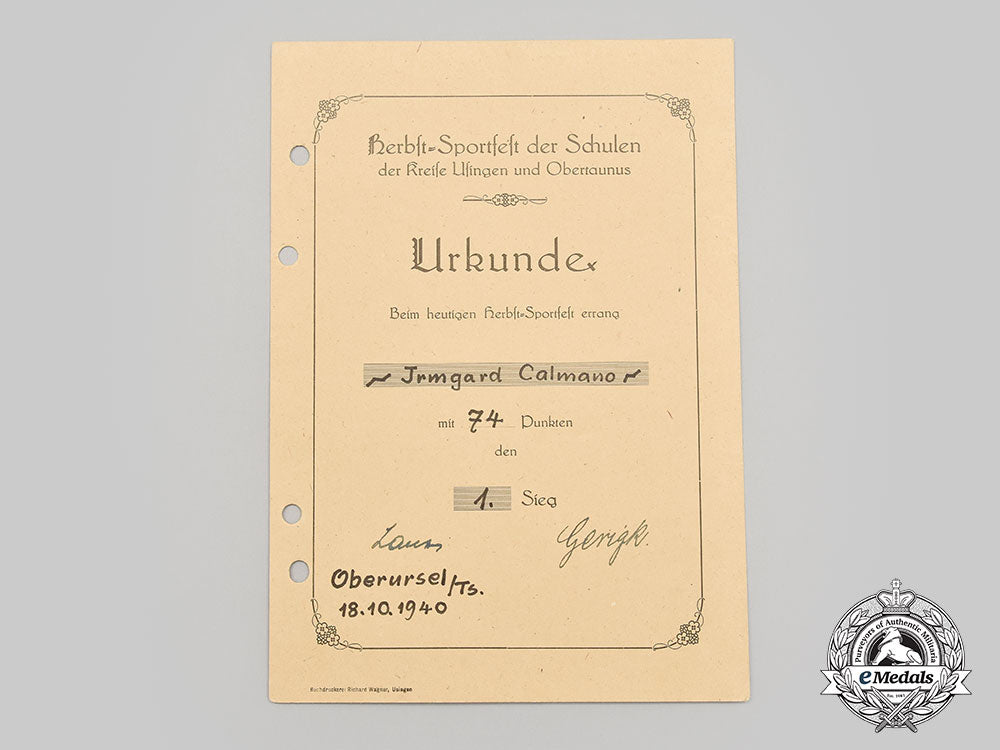 Herbst-Sportfest der Schulen
der Kreise Usingen und Obertaunus
Urkunde
Beim heutigen Herbst-Sportfest errang
~ Irmgard Calmano ~
mit 74 Punkten
den
1. Sieg
Gerigk.
Oberursel/Ts.
18.10.1940
Buchdruckerei Richard Wagner, Usingen
Purveyors of Authentic Militaria
eMedals